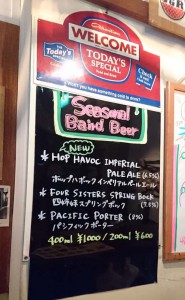 WELCOME
The Today's Special
TODAY'S SPECIAL
Food and Drink
Won't you have something cool to drink?
Seasonal
Baird Beer
NEW
* HOP HAVOC IMPERIAL
PALE ALE (6.5%)
ホップハボック インペリアルペールエール
* FOUR SISTERS SPRING BOCK
四姉妹スプリングボック (7.5%)
* PACIFIC PORTER (8%)
パシフィックポーター
400ml ¥1000 / 200ml ¥600